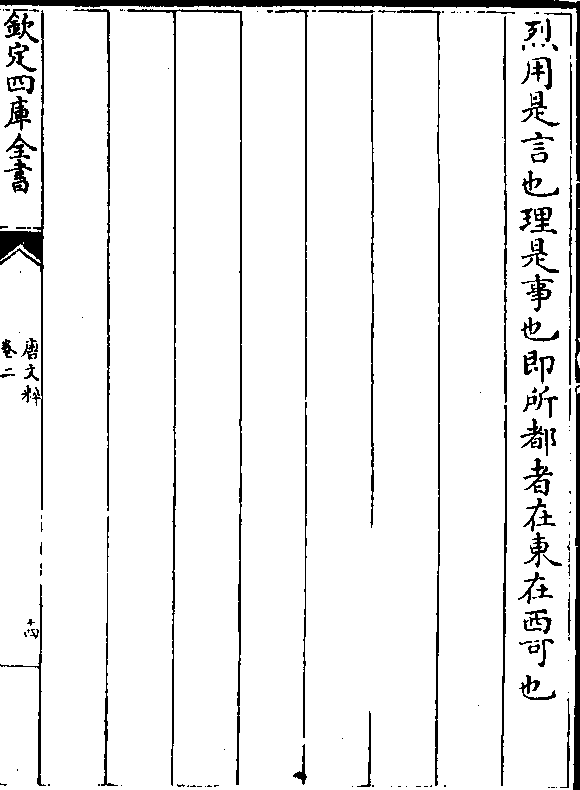 烈用是言也理是事也即所都者在東在西可也
欽定四庫全書
唐文粹
卷二
十四